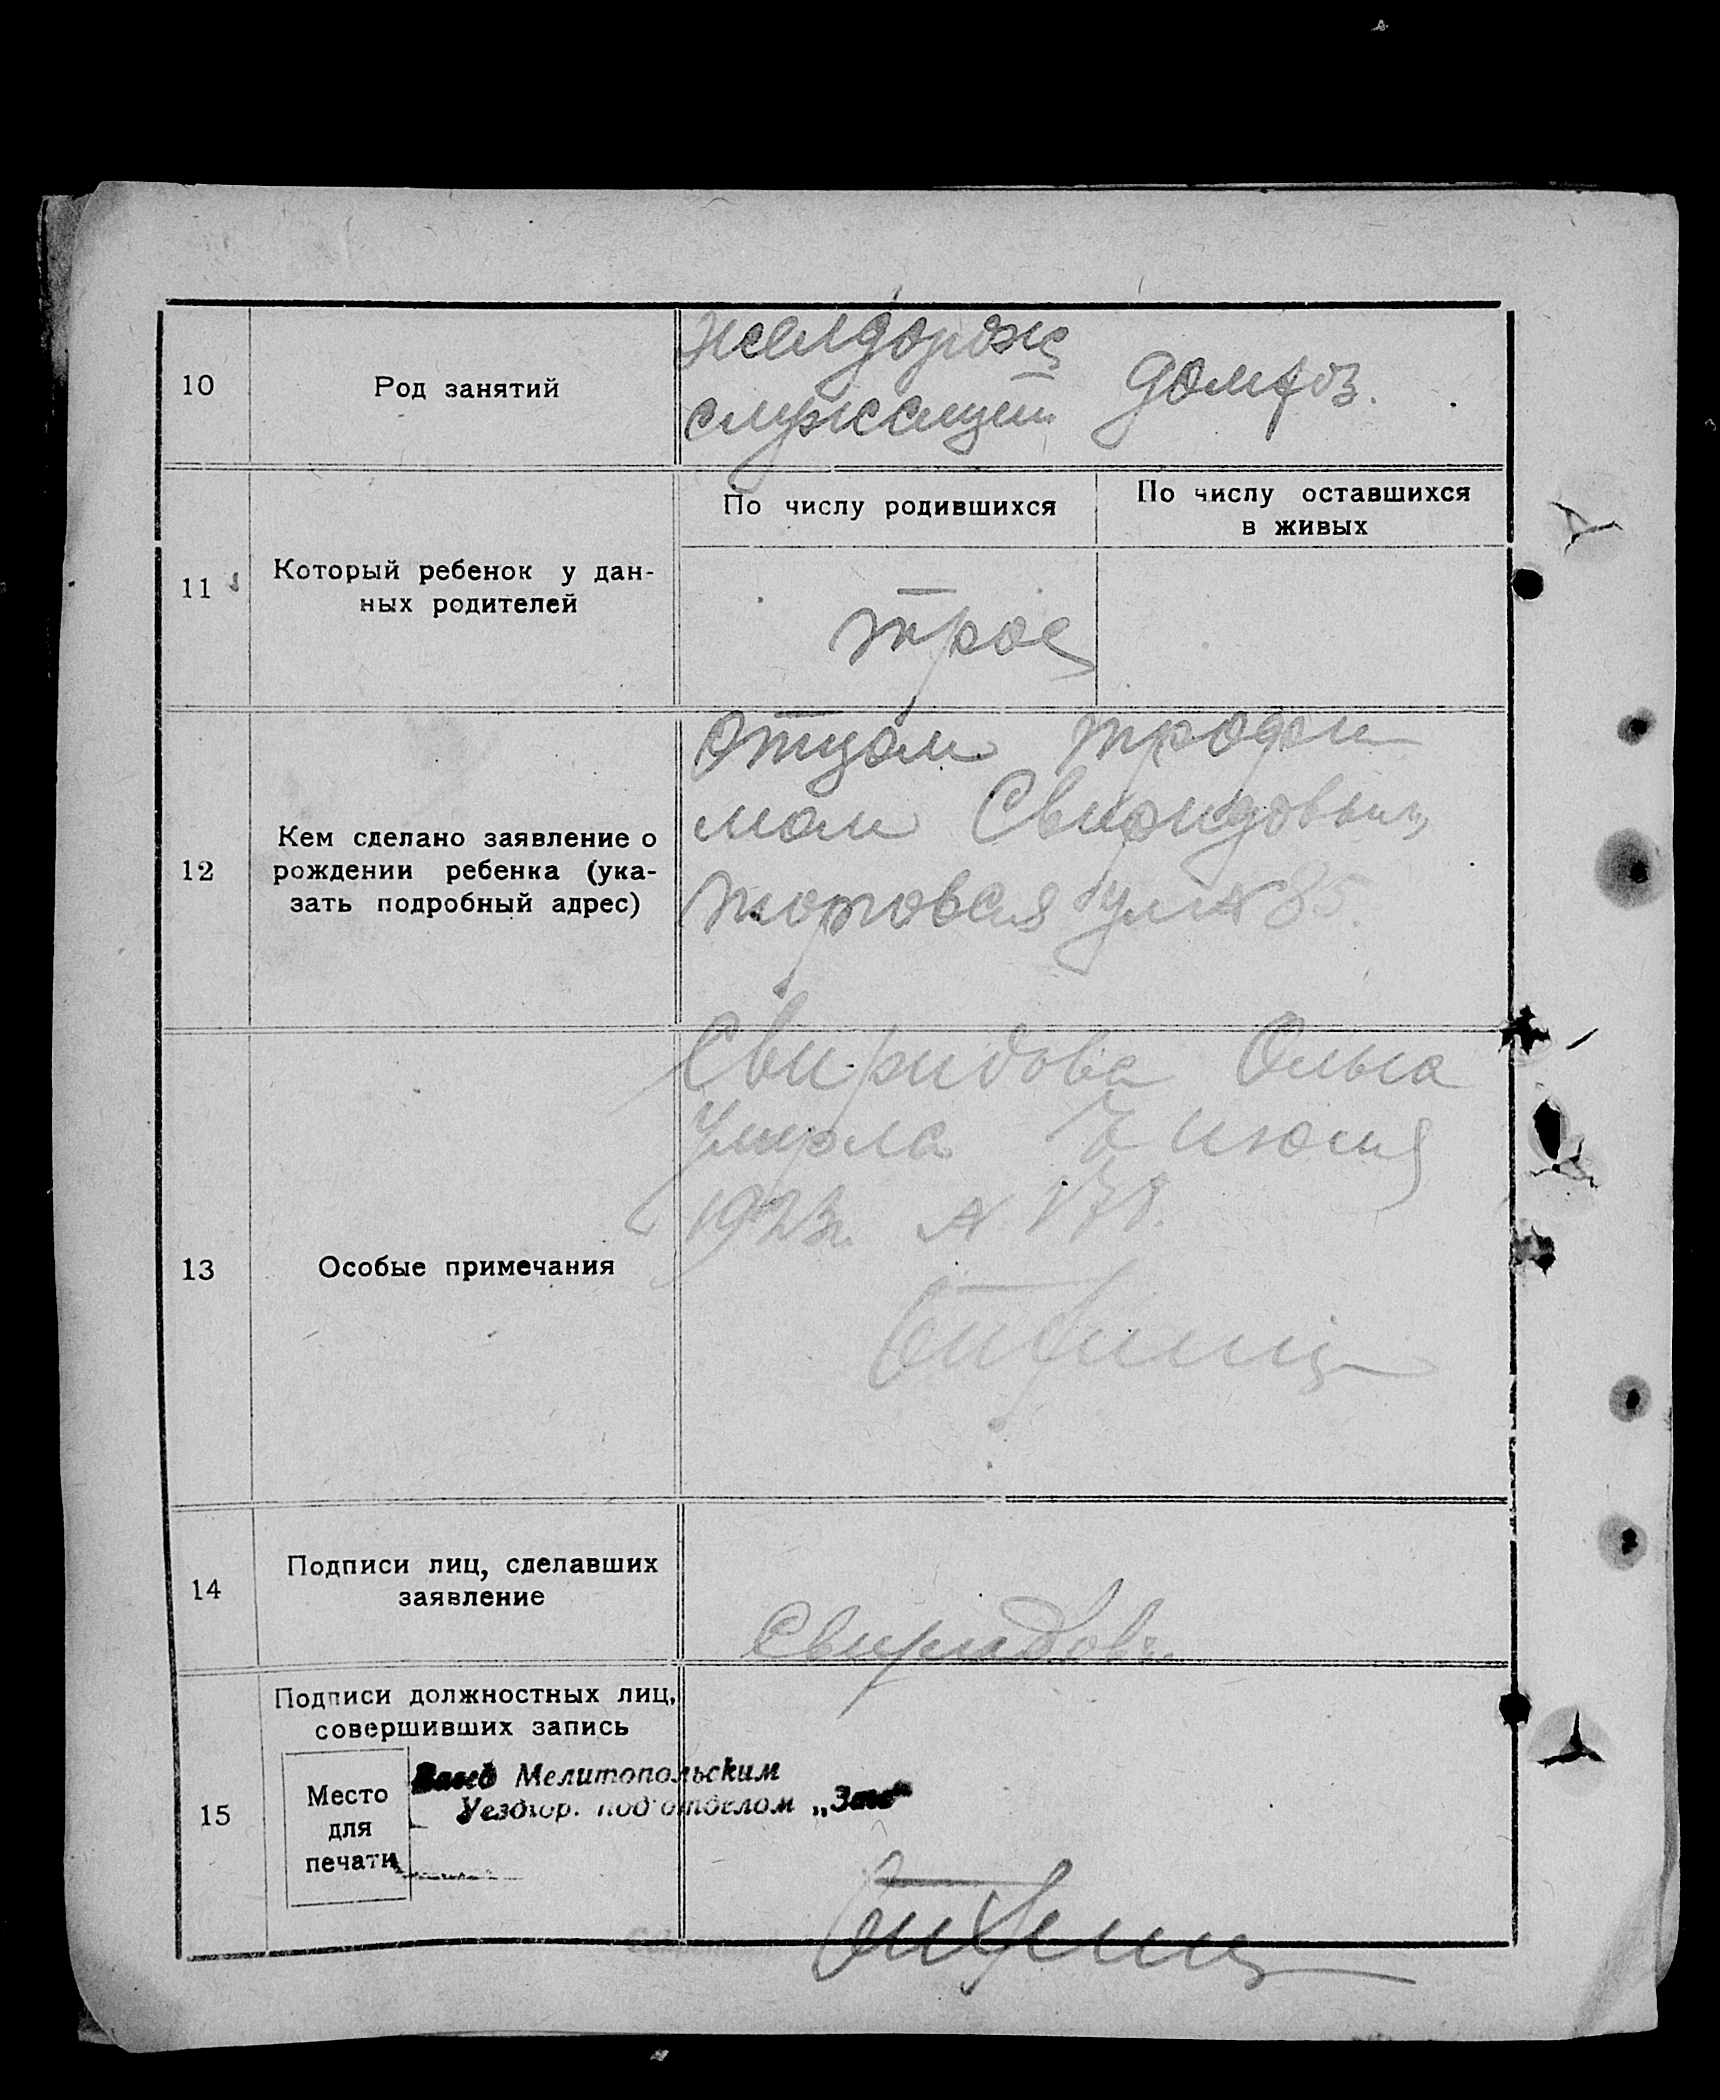 10
Род занятий
Желдорож
служащий
домхоз.
11
Который ребенок у дан-
ных родителей
По числу родившихся
По числу оставшихся
в живых
трое
12
Кем сделано заявление о
рождении ребенка (ука-
зать подробный адрес)
Отцом Трофи
мом Свиридовым
Торговая ул № 85.
13
Особые примечания
Свиридова Ольга
умерла 7 июня
1923г. № 178.
14
Подписи лиц, сделавших
заявление
Свиридов
15
Подписи должностных лиц,
совершивших запись
Место
для
печати
Мелитопольским
Уездгор. подотделом „Загс"